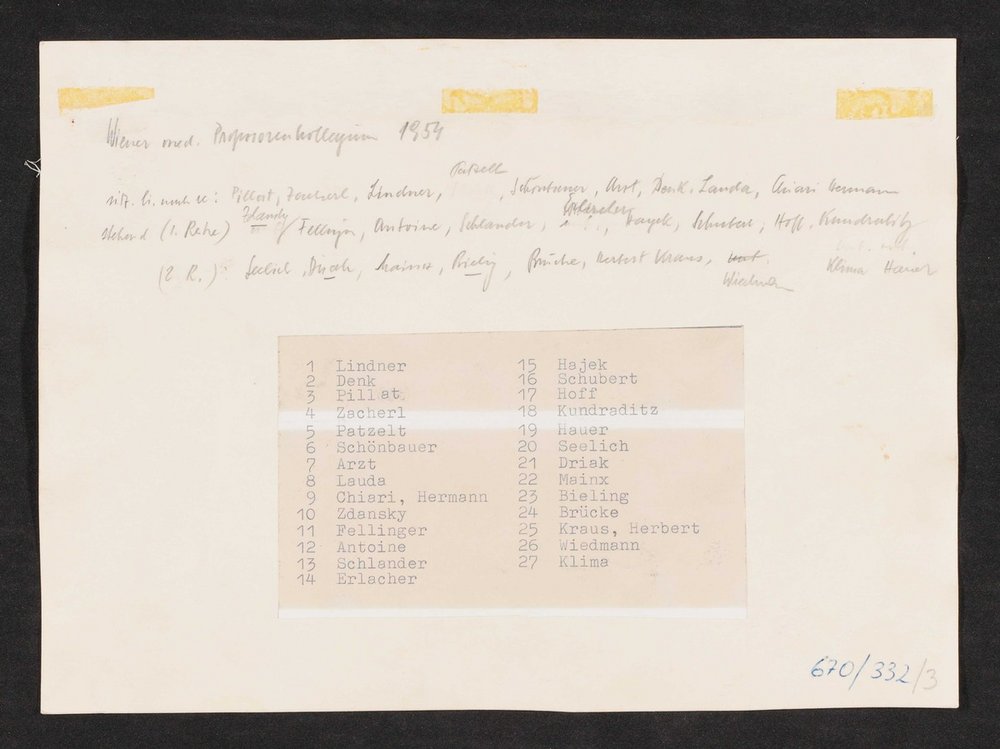 Wiener med. Professorenkollegium 1954
Patzelt
sitz. li. nach re: Pillat, Zacherl, Lindner, Schönbauer, Arzt, Denk, Lauda, Chiari Hermann
Zdansky Erlacher
stehend (1. Reihe) Fellinger, Antoine, Schlander, Hayek, Schubert, Hoff, Kundratitz
(2. R.): Seelich, Driak, Mainx, Bieling, Brücke, Herbert Kraus,
Wiedman Klima Hauer
1 Lindner
2 Denk
3 Pillat
4 Zacherl
5 Patzelt
6 Schönbauer
7 Arzt
8 Lauda
9 Chiari, Hermann
10 Zdansky
11 Fellinger
12 Antoine
13 Schlander
14 Erlacher
15 Hajek
16 Schubert
17 Hoff
18 Kundraditz
19 Hauer
20 Seelich
21 Driak
22 Mainx
23 Bieling
24 Brücke
25 Kraus, Herbert
26 Wiedmann
27 Klima
670/332/3